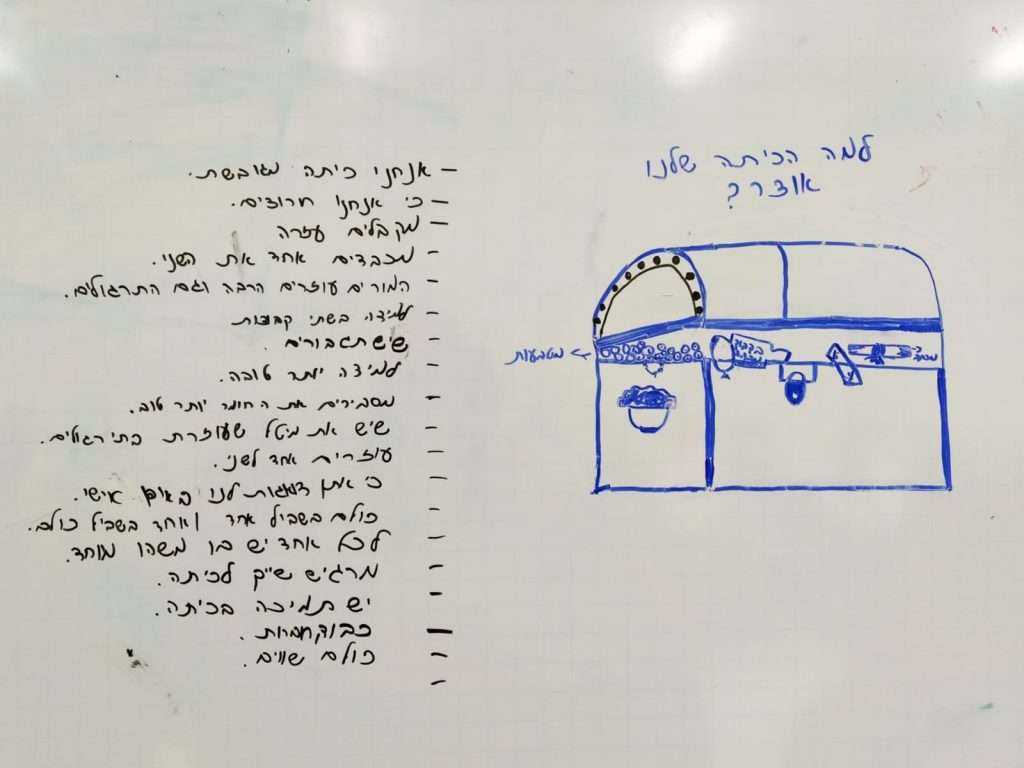 למה הכיתה שלנו
אוצר?
– אנחנו כיתה מגובשת.
– כי אנחנו חרוצים.
– מקבלים עזרה
– מכבדים אחד את השני.
– המורים עוזרים הרבה וגם התרגולים.
– למידה בשתי קבוצות
– שיש תגבורים.
– למידה יותר טובה.
– מסבירים את החומר יותר טוב.
– שיש את מיטל שעוזרת בתירגולים.
– עוזרים אחד לשני.
– כי אתן דואגות לנו באופן אישי.
– כולם בשביל אחד ואחד בשביל כולם.
– לכל אחד יש בו משהו מיוחד.
– מרגיש שייך לכיתה.
– יש תמיכה בכיתה.
– כבוד
– כולם שווים.
–
מטבעות